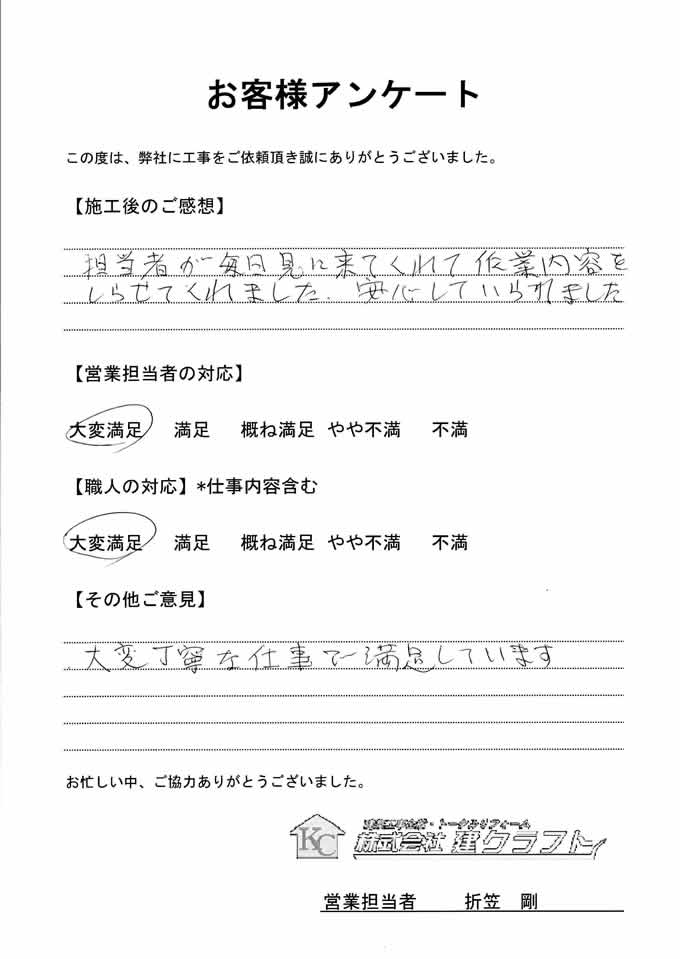 お客様アンケート
この度は、弊社に工事をご依頼頂き誠にありがとうございました。
【施工後のご感想】
担当者が毎日見に来てくれて作業内容を
しらせてくれました. 安心していられました
【営業担当者の対応】
大変満足 満足 概ね満足 やや不満 不満
【職人の対応】*仕事内容含む
大変満足 満足 概ね満足 やや不満 不満
【その他ご意見】
大変丁寧な仕事で満足しています
お忙しい中、ご協力ありがとうございました。
KC
株式会社 建クラフト
営業担当者 折笠 剛